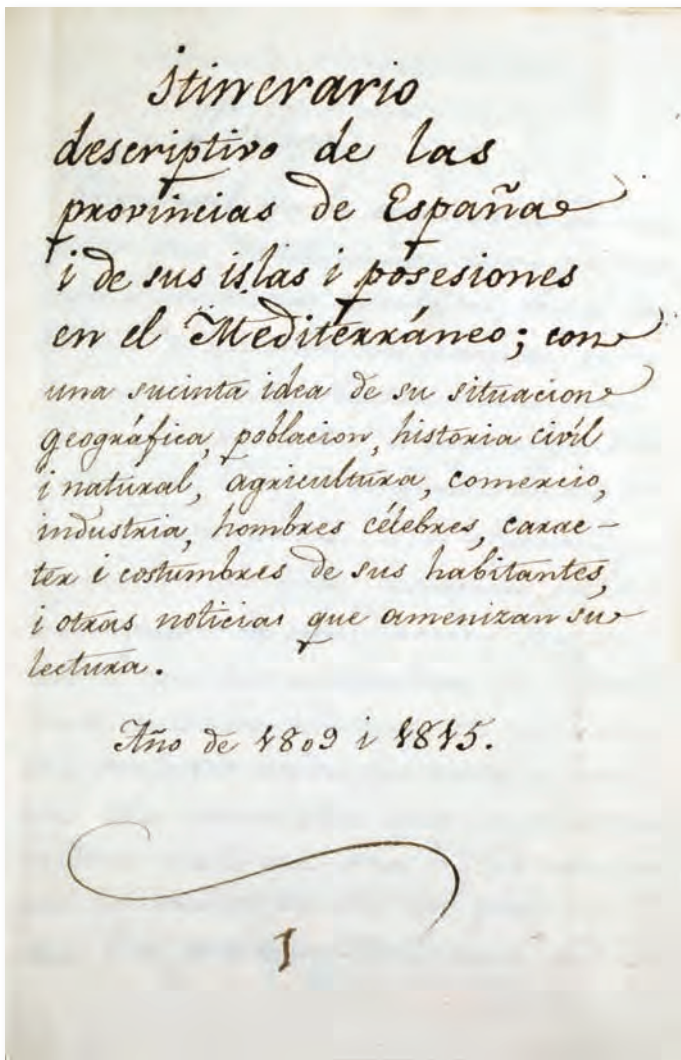 itinerario
descriptivo de las
provincias de España
i de sus islas i posesiones
en el Mediterráneo; con
una sucinta idea de su situacion
geográfica, poblacion, historia civíl
i natural, agricultura, comercio,
industria, hombres célebres, carac-
ter i costumbres de sus habitantes,
i otras noticias que amenizan su
lectura.
Año de 1809 i 1815.
1